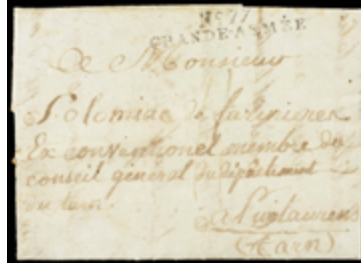 No. 77
GRANDE-ARMÉE
A Monsieur
Solomiac de
Ex conventionel membre du
conseil général du département
du tarn.
a Puylaurens
(Tarn)